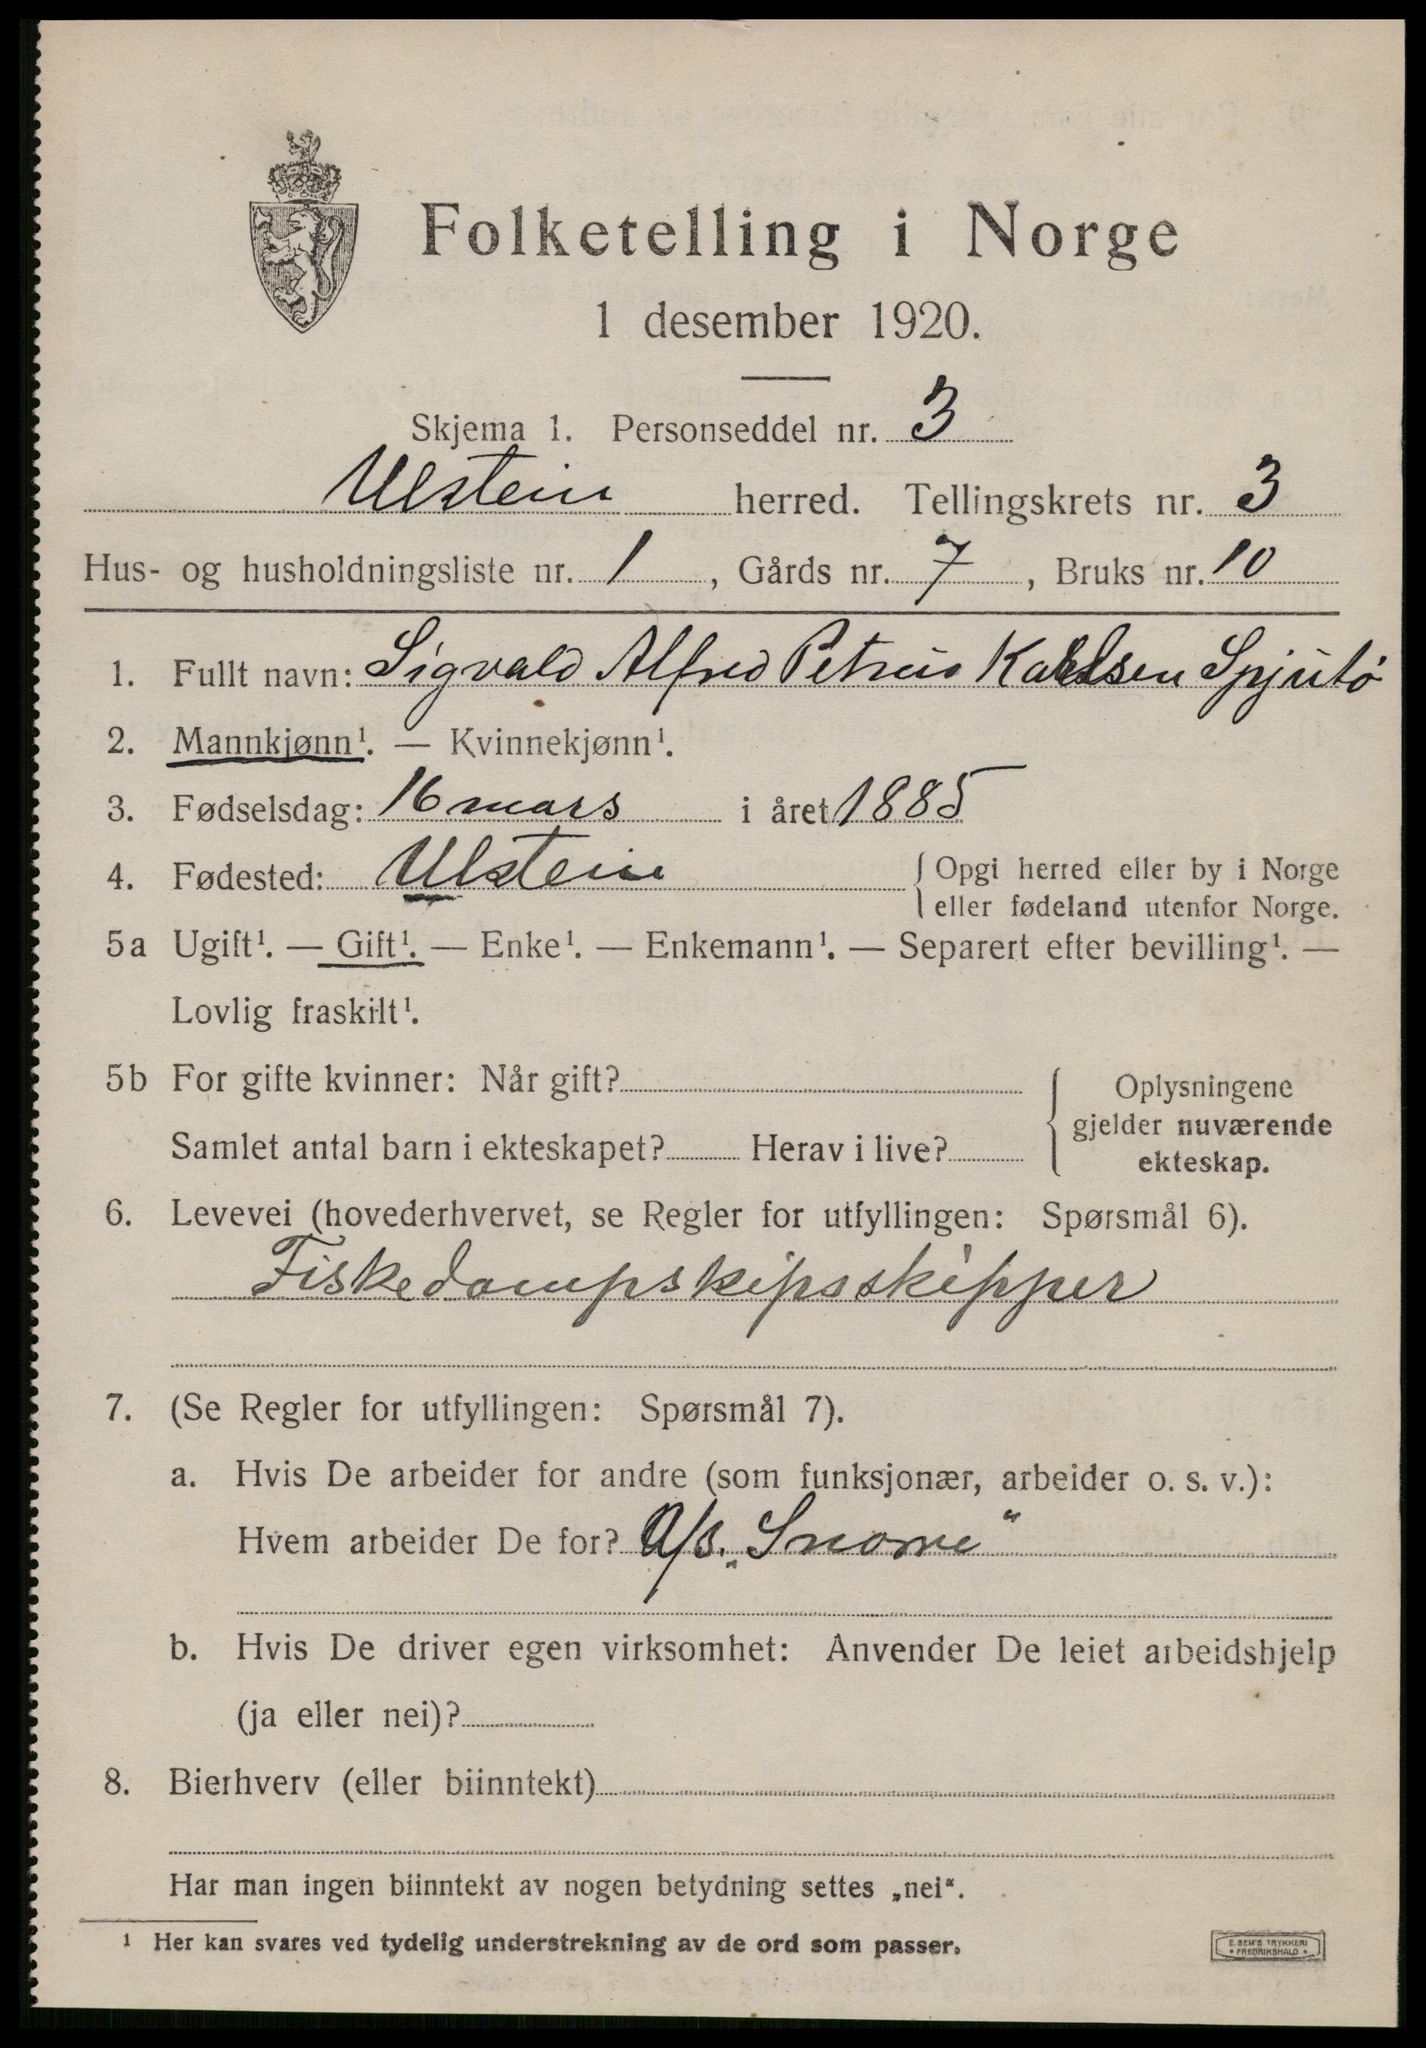 Folketelling i Norge
1 desember 1920.
Skjema 1. Personseddel nr. 3
Ulstein herred. Tellingskrets nr. 3
Hus- og husholdningsliste nr. 1, Gårds nr. 7, Bruks nr. 10
1. Fullt navn: Sigvald Alfred Petrus Karlsen Spjutø
2. Mannkjønn¹. — Kvinnekjønn¹.
3. Fødselsdag: 16 mars i året 1885
4. Fødested: Ulstein { Opgi herred eller by i Norge
eller fødeland utenfor Norge.
5a Ugift¹. — Gift¹. — Enke¹. — Enkemann¹. — Separert efter bevilling¹. —
Lovlig fraskilt¹.
5b For gifte kvinner: Når gift?
Samlet antal barn i ekteskapet? Herav i live?
Oplysningene
gjelder nuværende
ekteskap.
6. Levevei (hovederhvervet, se Regler for utfyllingen: Spørsmål 6).
Fiskedampskipsskipper
7. (Se Regler for utfyllingen: Spørsmål 7).
a. Hvis De arbeider for andre (som funksjonær, arbeider o. s. v.):
Hvem arbeider De for? A/S. „Snorre"
b. Hvis De driver egen virksomhet: Anvender De leiet arbeidshjelp
(ja eller nei)?
8. Bierhverv (eller biinntekt)
Har man ingen biinntekt av nogen betydning settes „nei".
¹ Her kan svares ved tydelig understrekning av de ord som passer.
E. SEM'S TRYKKERI
FREDRIKSHALD